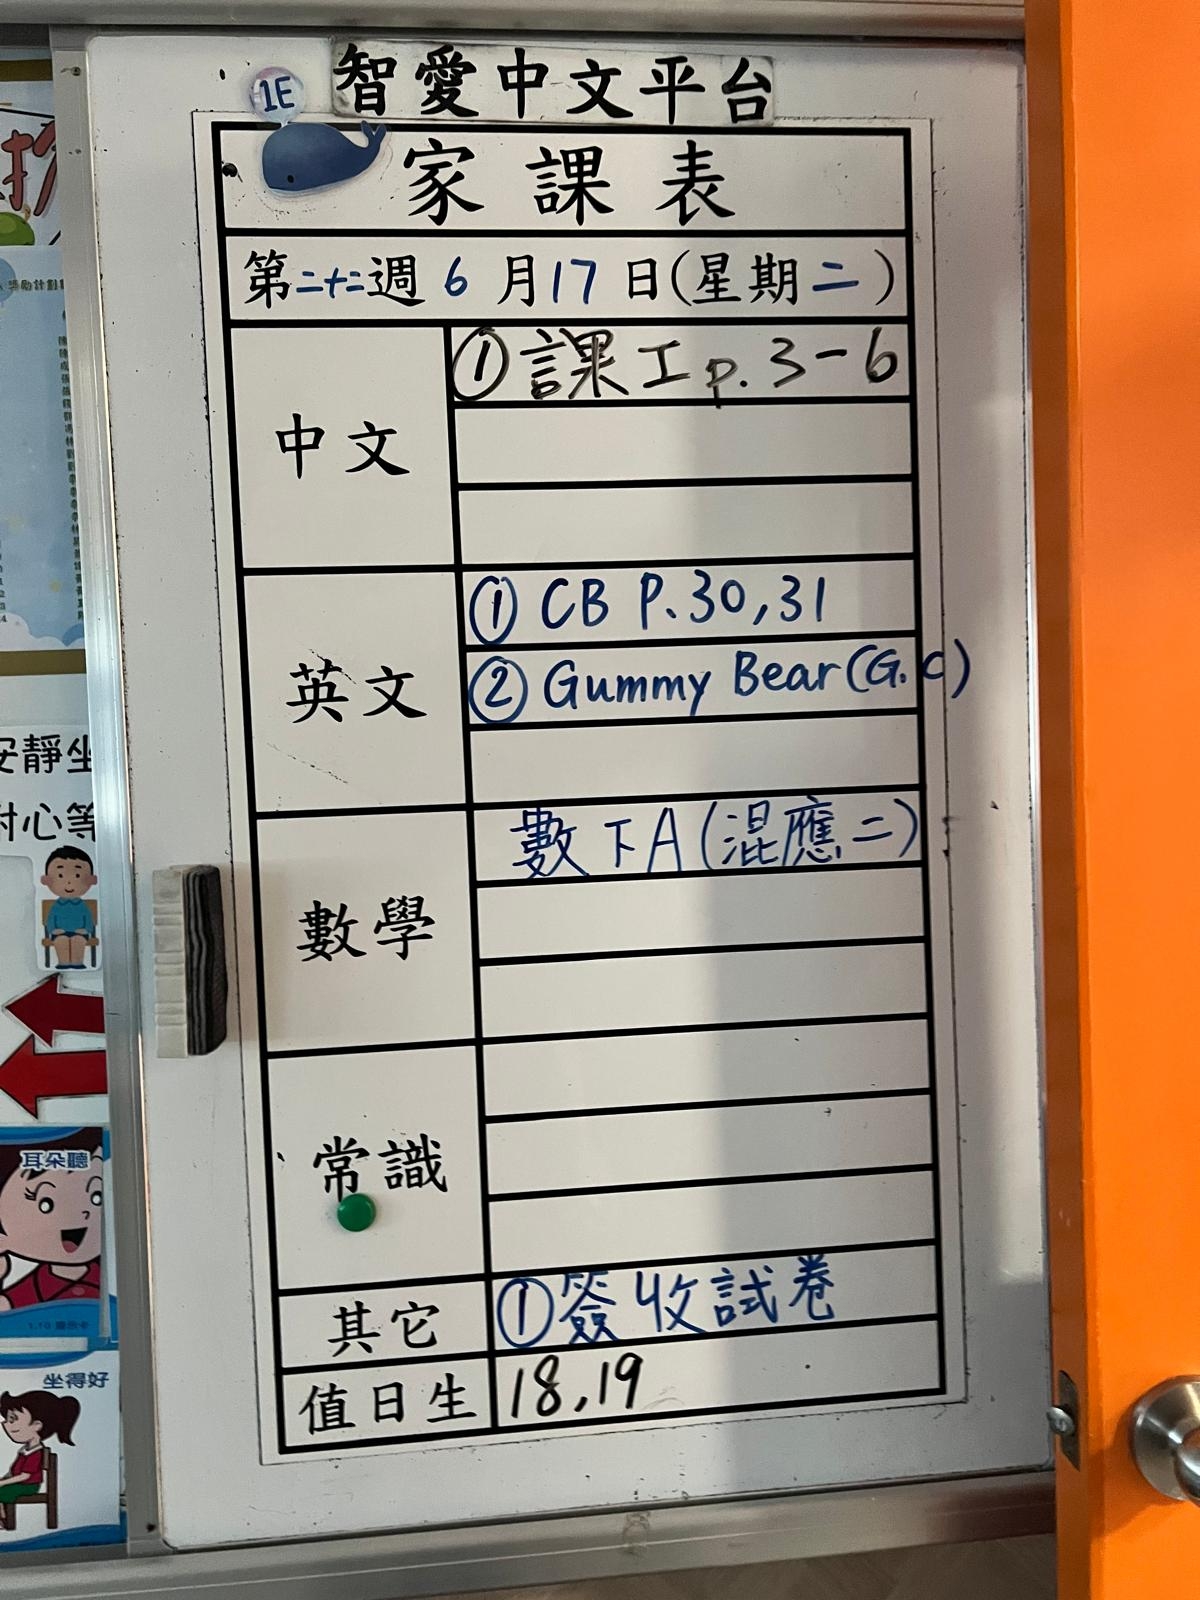 智愛中文平台
1E
家課表
第二十二週 6月17日(星期二)
中文
①課工p.3-6
英文
①CB P.30,31
②Gummy Bear(G.C)
數學
數下A(混應二)
常識
其它
①簽收試卷
值日生
18,19
安靜坐
耐心等
耳朵聽
坐得好